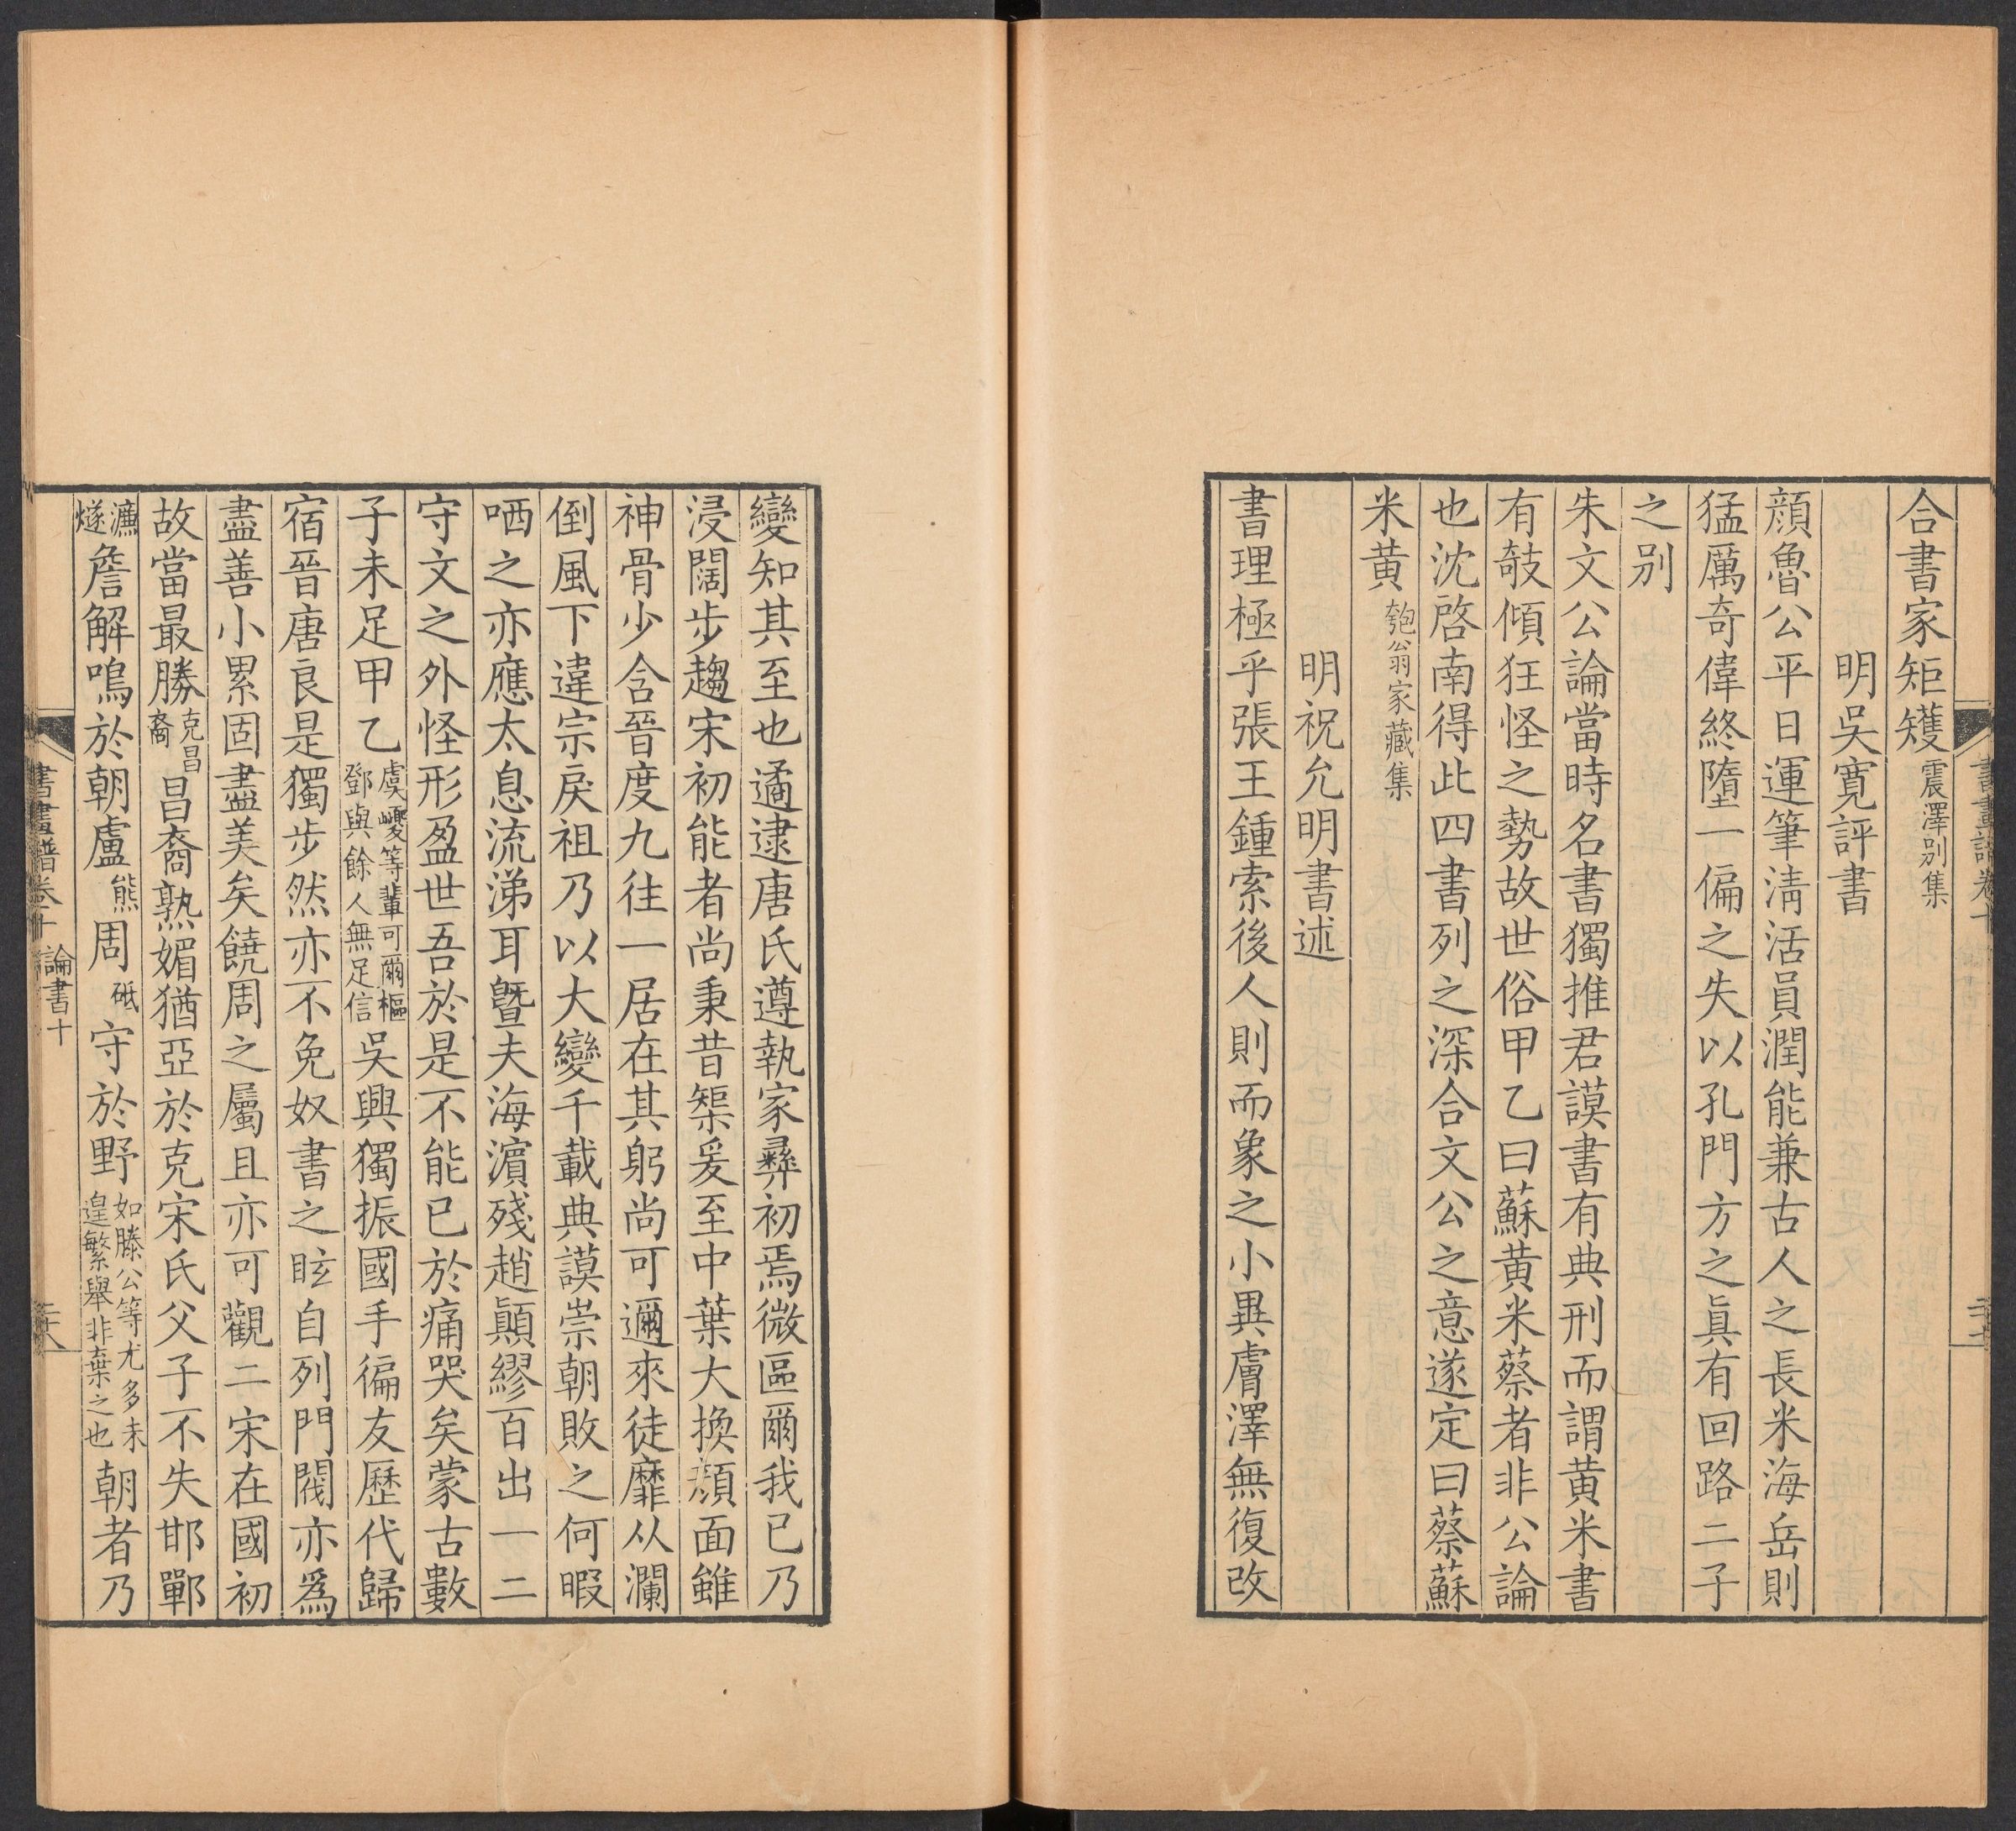 合書家矩矱震澤别集
明吳寛評書
顔魯公平日運筆淸活員潤能兼古人之長米海岳則
猛厲奇偉終墮一偏之失以孔門方之眞有回路二子
之别
朱文公論當時名書獨推君謨書有典刑而謂黄米書
有攲傾狂怪之勢故世俗甲乙曰蘇黄米蔡者非公論
也沈啓南得此四書列之深合文公之意遂定曰蔡蘇
米黄匏翁家藏集
明祝允明書述
書理極乎張王鍾索後人則而象之小異膚澤無復改
變知其至也遹逮唐氏遵執家彛初焉微區爾我已乃
浸闊步趨宋初能者尚秉昔榘爰至中葉大換顔面雖
神骨少含晉度九往一居在其躬尚可邇來徒靡从瀾
倒風下違宗戾祖乃以大變千載典謨崇朝敗之何暇
哂之亦應太息流涕耳曁夫海濵殘趙顚繆百出一二
守文之外怪形盈世吾於是不能已於痛哭矣蒙古數
子未足甲乙虞巙等輩可爾樞鄧與餘人無足信吳興獨振國手徧友歷代歸
宿晉唐良是獨步然亦不免奴書之眩自列門閥亦爲
盡善小累固盡美矣饒周之屬且亦可觀二宋在國初
故當最勝克昌裔昌裔熟媚猶亞於克宋氏父子不失邯鄲
濂燧詹解鳴於朝盧熊周砥守於野如滕公等尤多未遑繁舉非棄之也朝者乃
書畫譜卷十 論書十 二十八